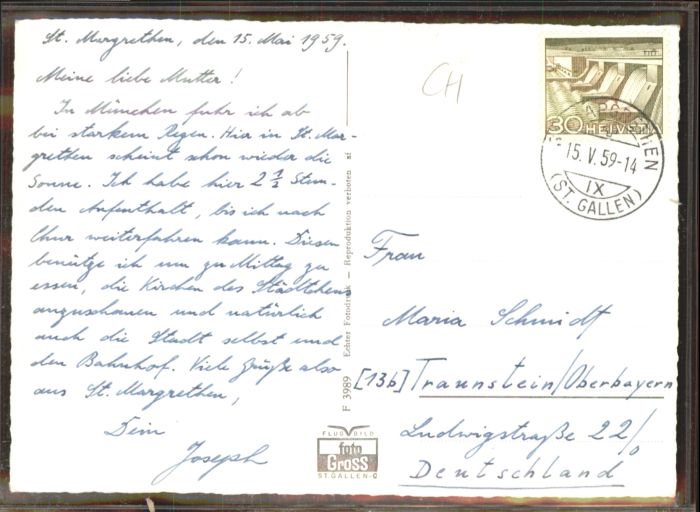 St. Margrethen, den 15. Mai 1959.
Meine liebe Mutter!
In München fuhr ich ab
bei starkem Regen. Hier in St. Mar-
grethen scheint schon wieder die
Sonne. Ich habe hier 2 1/2 Stun-
den Aufenthalt, bis ich nach
Chur weiterfahren kann. Diesen
benütze ich um zu Mittag zu
essen, die Kirchen des Städtchens
anzuschauen und natürlich
auch die Stadt selbst und
den Bahnhof. Viele Grüße also
aus St. Margrethen,
Dein
Joseph
F 3989 Echter Fotodruck – Reproduktion verboten
FLUGBILD
foto
Gross
ST. GALLEN-O
CH
30 HELVETIA
15. V. 59-14
IX
(ST. GALLEN)
Frau
Maria Schmidt
[13b] Traunstein/Oberbayern
Ludwigstraße 22/0
Deutschland